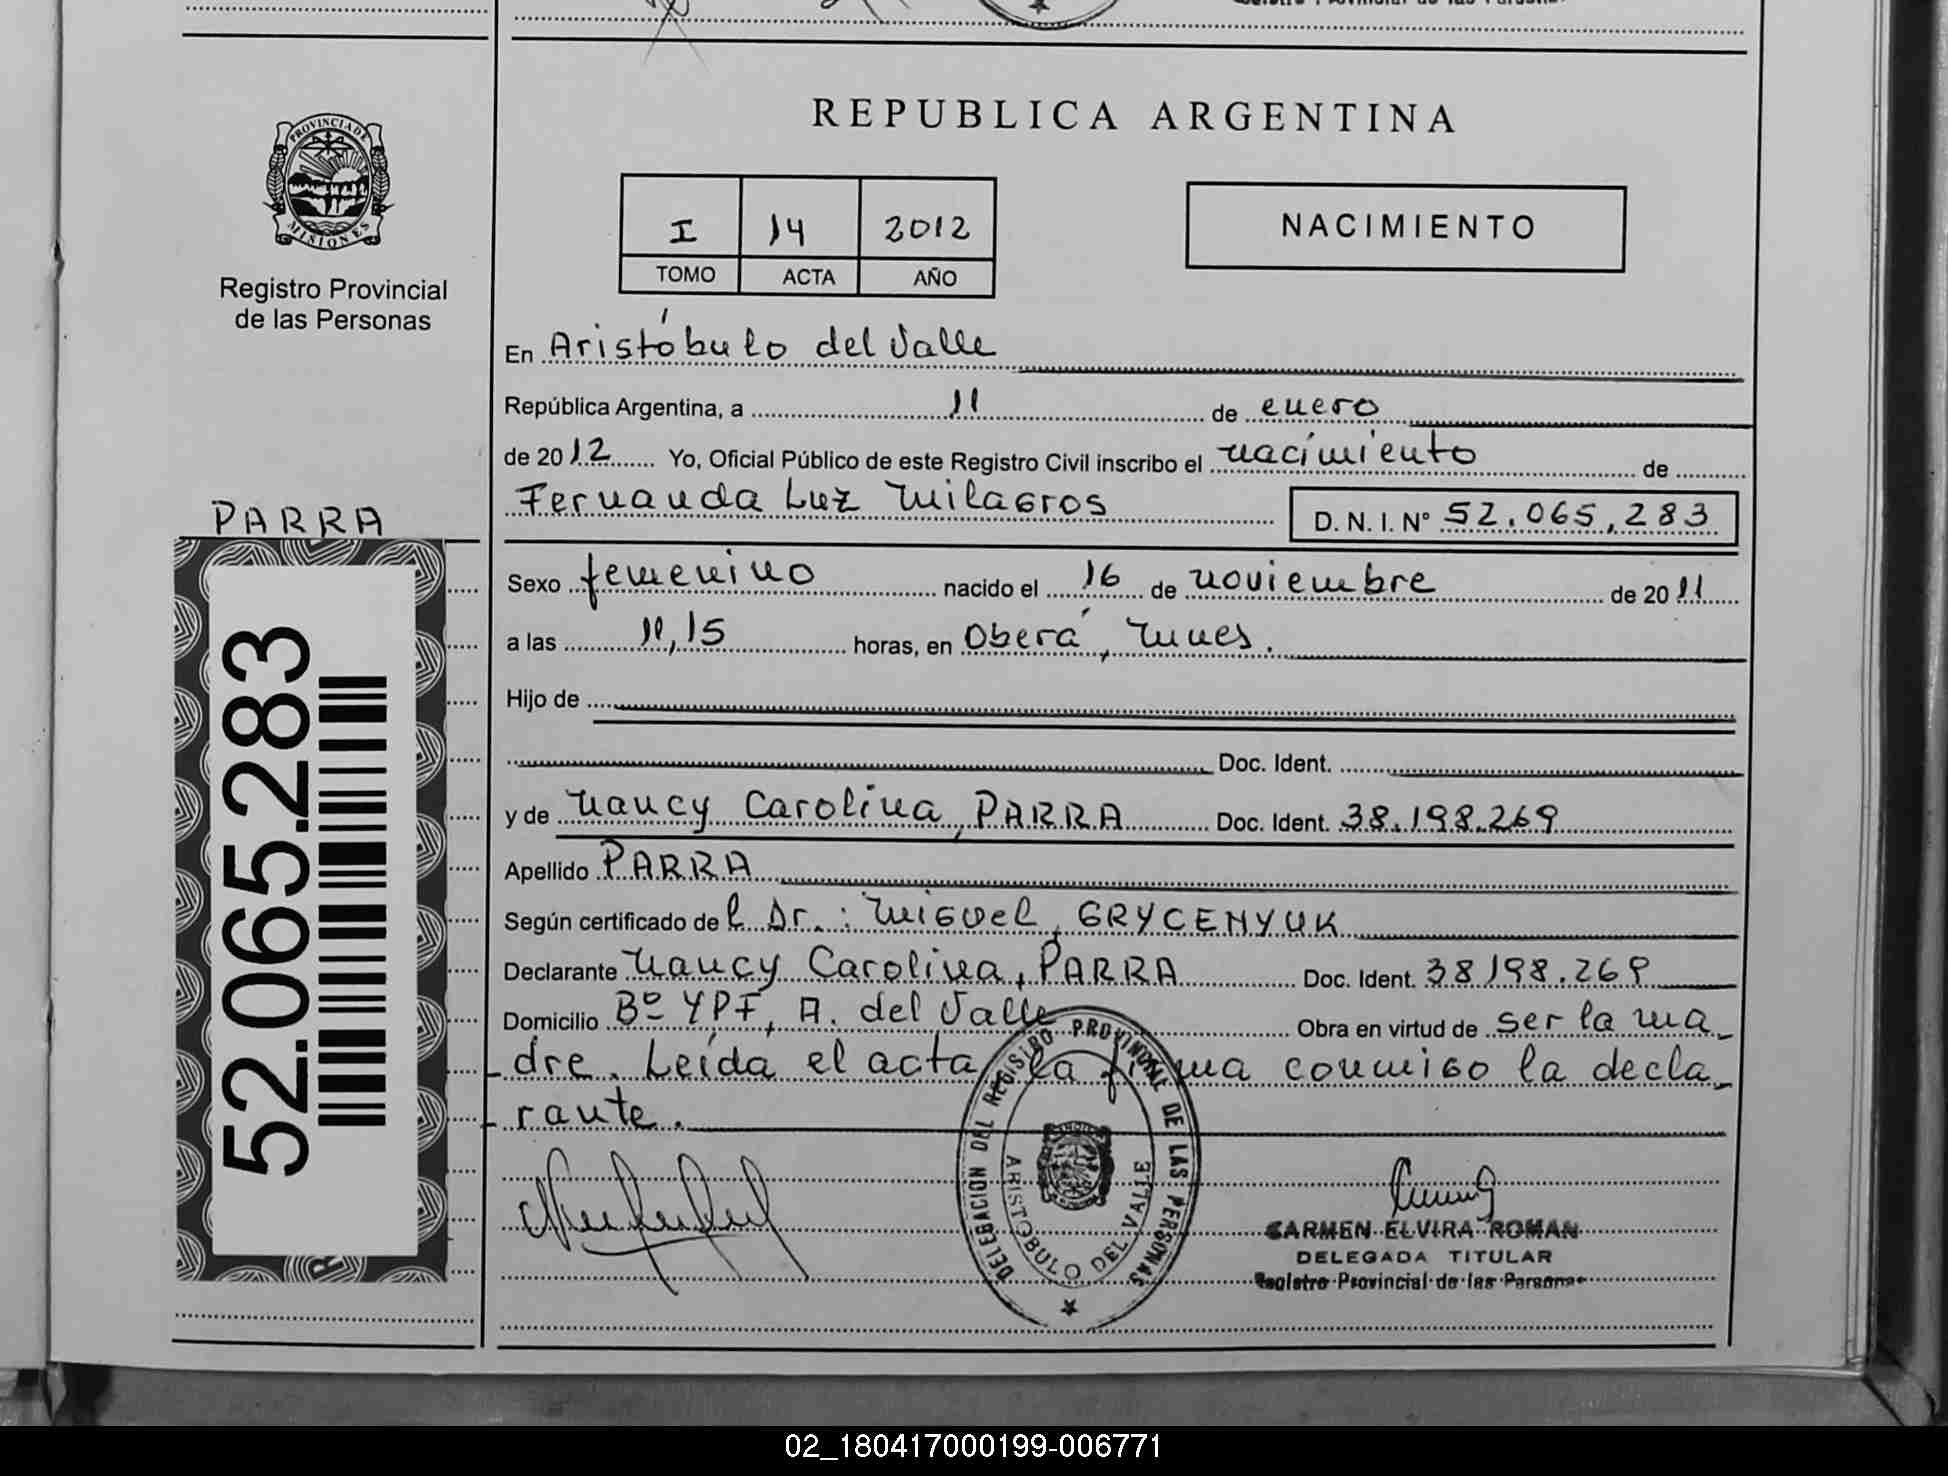 REPUBLICA ARGENTINA
PROVINCIA DE
MISIONES
Registro Provincial
de las Personas
I 14 2012
TOMO ACTA AÑO
NACIMIENTO
En Aristóbulo del Valle
República Argentina, a 11 de enero
de 2012 Yo, Oficial Público de este Registro Civil inscribo el nacimiento de
Fernanda Luz Milagros D. N. I. Nº 52.065.283
PARRA
52.065.283
Sexo femenino nacido el 16 de noviembre de 2011
a las 11,15 horas, en Oberá, Mnes.
Hijo de
Doc. Ident.
y de Nancy Carolina, PARRA Doc. Ident. 38.198.269
Apellido PARRA
Según certificado de l Dr.: Miguel, GRYCENYUK
Declarante Nancy Carolina, PARRA Doc. Ident. 38198.269
Domicilio Bº YPF, A. del Valle Obra en virtud de ser la ma_
_dre. Leída el acta, la firma conmigo la decla_
_rante.
DELEGACION DEL REGISTRO PROVINCIAL DE LAS PERSONAS
ARISTOBULO DEL VALLE
CARMEN ELVIRA ROMAN
DELEGADA TITULAR
Registro Provincial de las Personas
02_180417000199-006771